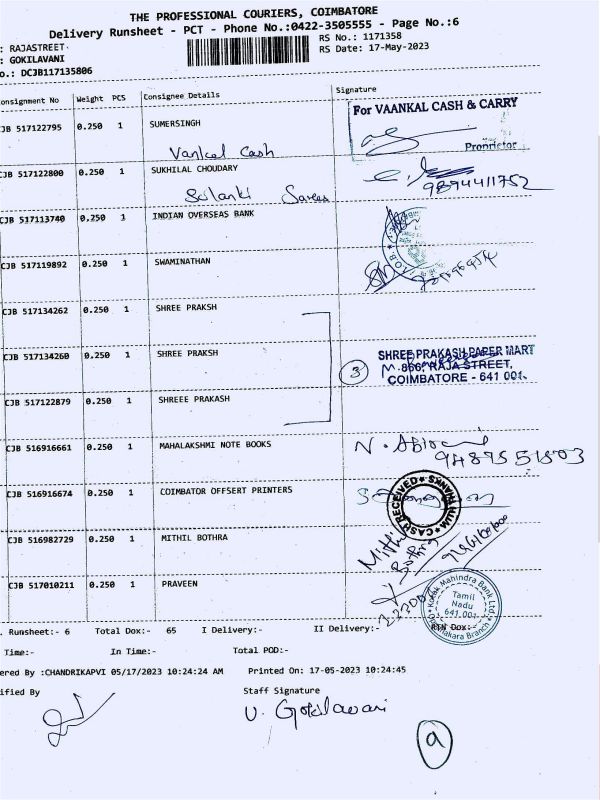 THE PROFESSIONAL COURIERS, COIMBATORE
Delivery Runsheet - PCT - Phone No.:0422-3505555 - Page No.:6
: RAJASTREET
RS No.: 1171358
: GOKILAVANI
RS Date: 17-May-2023
o.: DCJB117135806
onsignment No Weight PCS Consignee Details Signature
CJB 517122795 0.250 1 SUMERSINGH
For VAANKAL CASH & CARRY
Proprietor
Vankal Cash
CJB 517122800 0.250 1 SUKHILAL CHOUDARY
9894411752
Solanki Sarees
CJB 517113740 0.250 1 INDIAN OVERSEAS BANK
CJB 517119892 0.250 1 SWAMINATHAN
CJB 517134262 0.250 1 SHREE PRAKSH
CJB 517134260 0.250 1 SHREE PRAKSH
3
SHREE PRAKASH PAPER MART
866, RAJA STREET,
COIMBATORE - 641 001.
CJB 517122879 0.250 1 SHREEE PRAKASH
CJB 516916661 0.250 1 MAHALAKSHMI NOTE BOOKS
CJB 516916674 0.250 1 COIMBATOR OFFSERT PRINTERS
CASH RECEIVED
WITH THANKS
CJB 516982729 0.250 1 MITHIL BOTHRA
Mithil
Bothra
CJB 517010211 0.250 1 PRAVEEN
Kotak Mahindra Bank Ltd.
Tamil
Nadu
641 001
. Runsheet:- 6 Total Dox:- 65 I Delivery:- II Delivery:- RTN Dox:-
Time:- In Time:- Total POD:-
ered By :CHANDRIKAPVI 05/17/2023 10:24:24 AM Printed On: 17-05-2023 10:24:45
ified By Staff Signature
U. Gokilavani
a